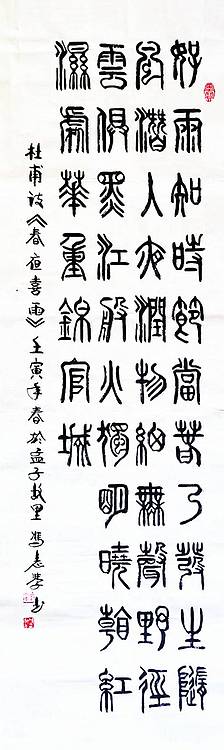 好雨知時節當春乃發生隨
風潛入夜潤物細無聲野徑
雲俱黑江船火獨明曉看紅
濕處華重錦官城
杜甫诗《春夜喜雨》壬寅年春於孟子故里